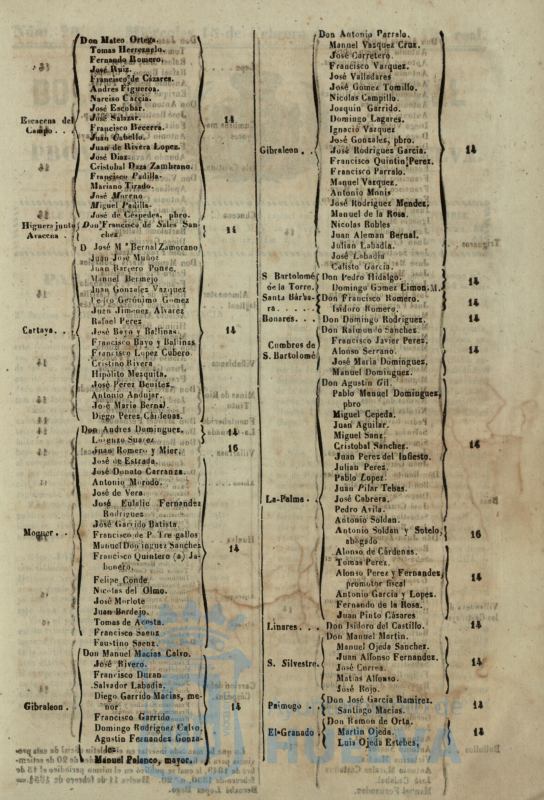 Don Mateo Ortega.
Tomas Herrezuelo.
Fernando Romero.
José Ruiz.
Francisco de Cazares.
Andres Figueroa.
Narciso Garcia.
José Escobar.
Escacena del José Salazar. 14
Campo . . Francisco Becerra.
Juan Cabello.
Juan de Rivera Lopez.
José Diaz.
Cristobal Daza Zambrano.
Francisco Padilla.
Mariano Tirado.
José Moreno
Miguel Padilla.
José de Céspedes, pbro.
Higuera junto Don Francisco de Sales San- 14
Aracena . chez.
D José M.ª Bernal Zamorano
Juan José Muñoz
Juan Barrero Ponce.
Manuel Bermejo
Juan Gonzalez Vazquez
Pedro Gerónimo Gomez
Juan Jimenez Alvarez
Rafael Perez
Cartaya. . . José Bayo y Ballinas. 14
Francisco Bayo y Ballinas
Francisco Lopez Cubero
Cristino Rivera
Hipólito Mezquita.
José Perez Benitez
Antonio Andujar.
José Maria Bernal.
Diego Perez Cárdenas.
Don Andres Dominguez. 14
Lorenzo Suarez
Juan Romero y Mier. 16
José de Estrada.
José Donato Carranza.
Antonio Morodo.
José de Vera.
José Eulalic Fernandez
Rodriguez
José Garrido Batista.
Moguer. . . Francisco de P. Tre gallos
Manuel Dominguez Sanchez 14
Francisco Quintero (a) Ja-
bonero.
Felipe Conde.
Nicolas del Olmo.
José Morlote
Juan Bardejo.
Tomas de Acosta.
Francisco Saenz
Faustino Saenz.
Don Manuel Macias Calvo.
José Rivero.
Francisco Duran
Salvador Labadia.
Diego Garrido Macias, me-
Gibraleon . nor 14
Francisco Garrido
Domingo Rodriguez Calvo.
Agustin Fernandez Gonza-
lez
Manuel Polanco, mayor.
Don Antonio Parralo.
Manuel Vazquez Cruz.
José Carretero.
Francisco Varquez.
José Valladares
José Gomez Tomillo.
Nicolas Campillo.
Joaquin Garrido.
Domingo Lagares.
Ignacio Vazquez
José Gonzales, pbro.
Gibraleon . . José Rodriguez Garcia. 14
Francisco Quintin Perez.
Francisco Parralo.
Manuel Varquez.
Antonio Monis
José Rodriguez Mendez.
Manuel de la Rosa.
Nicolas Robles
Juan Aleman Bernal.
Julian Labadia.
José Labadia
Calisto Garcia.
S Bartolomé Don Pedro Hidalgo. 14
de la Torre. Domingo Gomez Limon. M.
Santa Bárba- Don Francisco Romero. 14
ra . . . . . . Isidoro Romero.
Bonares. . . Don Domingo Rodriguez. 14
Don Raimundo Sanchez.
Cumbres de Francisco Javier Perez.
S. Bartolomé Alonso Serrano. 14
José Maria Dominguez.
Manuel Dominguez.
Don Agustin Gil.
Pablo Manuel Dominguez,
pbro
Miguel Cepeda.
Juan Aguilar.
Miguel Sanz.
Cristobal Sanchez. 14
Juan Perez del Infiesto.
Julian Perez.
Pablo Lopez
Juan Pilar Tebas.
La-Palma . José Cabrera.
Pedro Avila.
Antonio Soldan.
Antonio Soldan y Sotelo, 16
abogado
Alonso de Cárdenas.
Tomas Perez.
Alonso Perez y Fernandez, 14
promotor fiscal
Antonio Garcia y Lopes.
Fernando de la Rosa.
Juan Pinto Cásares
Linares. . . Don Isidoro del Castillo. 14
Don Manuel Martin.
Manuel Ojeda Sanchez.
Juan Alfonso Fernandez.
S. Silvestre. José Correa. 14
Matias Alfonso.
José Rojo.
Paimogo . Don José Garcia Ramirez. 14
Santiago Macias.
Don Ramon de Orta.
El-Granado . Martin Ojeda. 14
Luis Ojeda Estebes.
HUELVA